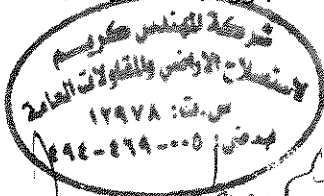 شركة المهندس كريم
لاستصلاح الأراضي والمقاولات العامة
س.ت: ١٢٩٧٨
ب.ض: ٠٠٥-٤٦٩-٤٩٤